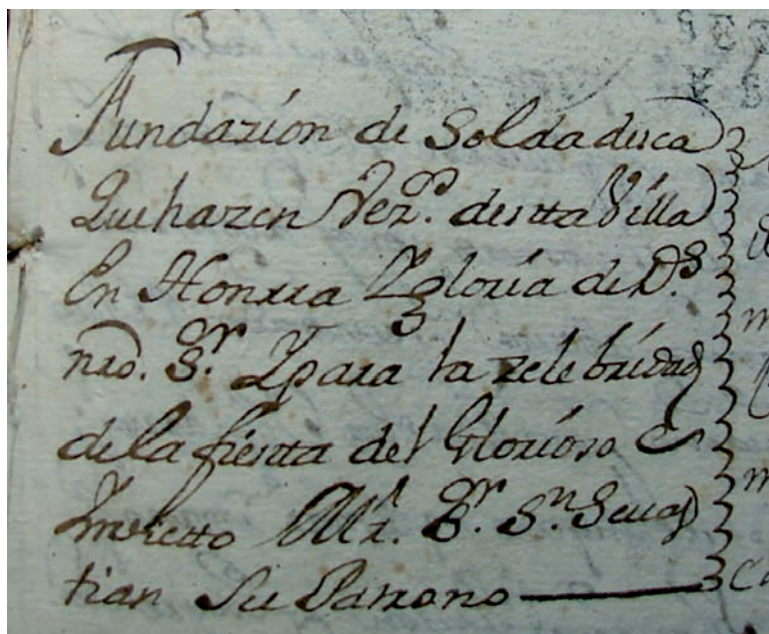 Fundazion de Soldadesca
Que hazen Vez.os desta Villa
En Honrra Y gloria de D.s
nro. S.r Y para la zelebridad
de la fiesta del Glorioso e
Invicto M.r S.r S.n Sevas
tian Su Patrono